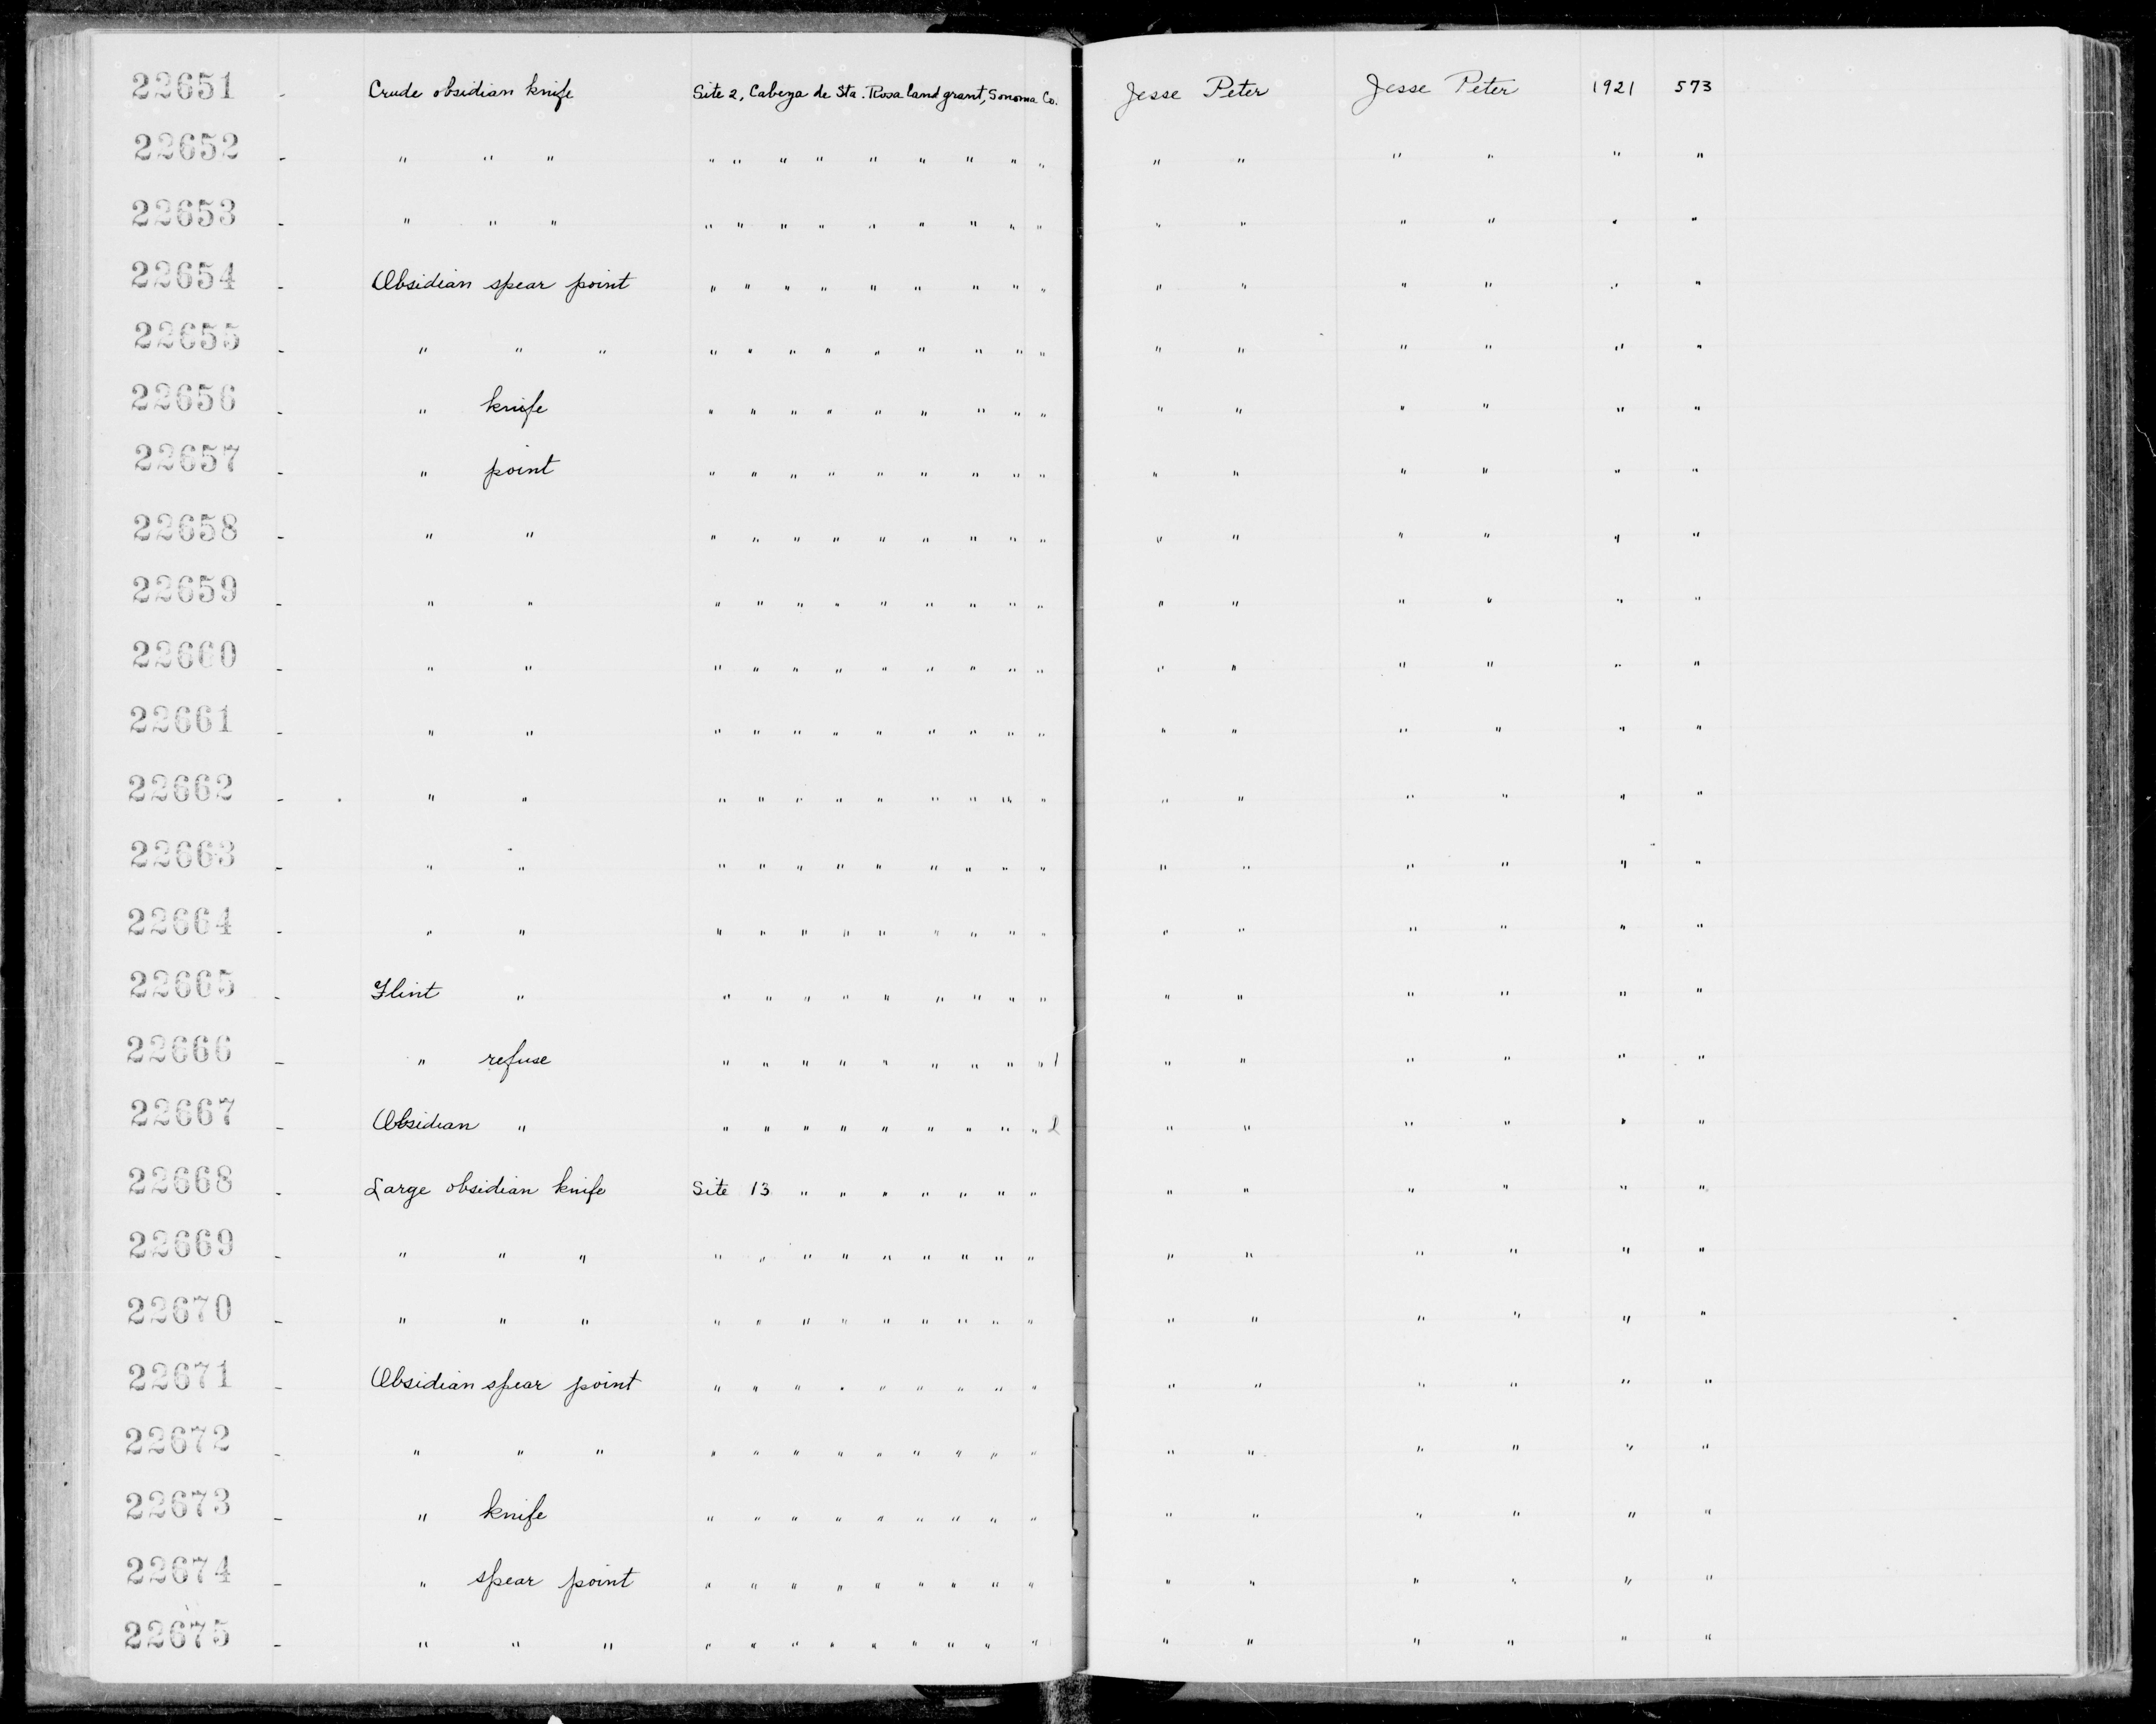 22651 - Crude obsidian knife Site 2, Cabeza de Sta. Rosa land grant, Sonoma Co. Jesse Peter Jesse Peter 1921 573
22652 - " " " " " " " " " " " " " " " " " "
22653 - " " " " " " " " " " " " " " " " " "
22654 - Obsidian spear point " " " " " " " " " " " " " " "
22655 - " " " " " " " " " " " " " " " " " "
22656 - " knife " " " " " " " " " " " " " " "
22657 - " point " " " " " " " " " " " " " " "
22658 - " " " " " " " " " " " " " " " " "
22659 - " " " " " " " " " " " " " " " " "
22660 - " " " " " " " " " " " " " " " " "
22661 - " " " " " " " " " " " " " " " " "
22662 - " " " " " " " " " " " " " " " " "
22663 - " " " " " " " " " " " " " " " " "
22664 - " " " " " " " " " " " " " " " " "
22665 - Flint " " " " " " " " " " " " " " " "
22666 - " refuse " " " " " " " " " 1 " " " " " "
22667 - Obsidian " " " " " " " " " " " " " " " "
22668 - Large obsidian knife Site 13 " " " " " " " " " " " " "
22669 - " " " " " " " " " " " " " " " " " "
22670 - " " " " " " " " " " " " " " " " " "
22671 - Obsidian spear point " " " " " " " " " " " " " " "
22672 - " " " " " " " " " " " " " " " " " "
22673 - " knife " " " " " " " " " " " " " " "
22674 - " spear point " " " " " " " " " " " " " " "
22675 - " " " " " " " " " " " " " " " " " "